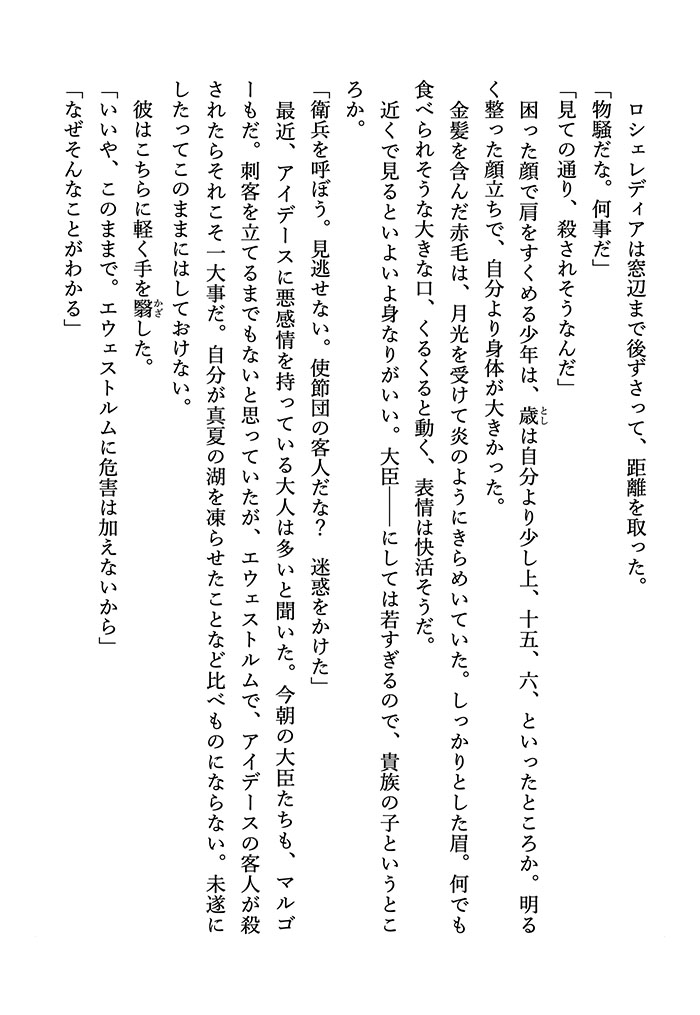 ロシェレディアは窓辺まで後ずさって、距離を取った。
「物騒だな。何事だ」
「見ての通り、殺されそうなんだ」
　困った顔で肩をすくめる少年は、歳は自分より少し上、十五、六、といったところか。明る
く整った顔立ちで、自分より身体が大きかった。
　金髪を含んだ赤毛は、月光を受けて炎のようにきらめいていた。しっかりとした眉。何でも
食べられそうな大きな口、くるくると動く、表情は快活そうだ。
　近くで見るといよいよ身なりがいい。大臣――にしては若すぎるので、貴族の子というとこ
ろか。
「衛兵を呼ぼう。見逃せない。使節団の客人だな？　迷惑をかけた」
　最近、アイデースに悪感情を持っている大人は多いと聞いた。今朝の大臣たちも、マルゴ
ーもだ。刺客を立てるまでもないと思っていたが、エウェストルムで、アイデースの客人が殺
されたらそれこそ一大事だ。自分が真夏の湖を凍らせたことなど比べものにならない。未遂に
したってこのままにはしておけない。
　彼はこちらに軽く手を翳した。
「いいや、このままで。エウェストルムに危害は加えないから」
「なぜそんなことがわかる」